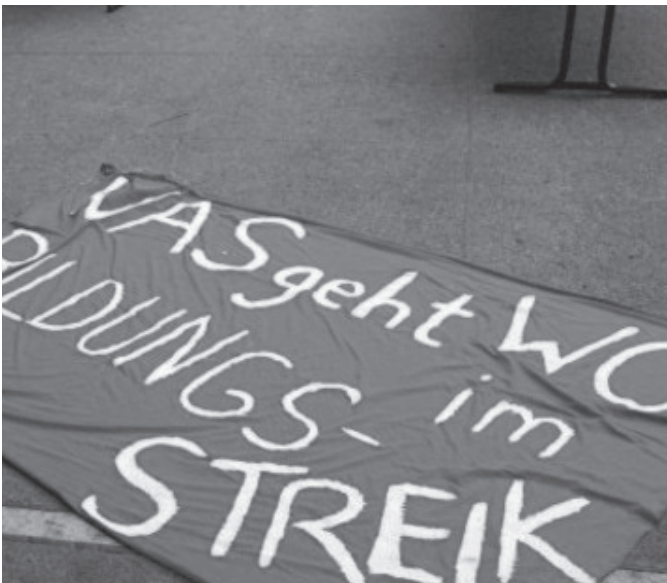 VAS geht WO
BILDUNGS- im
STREIK